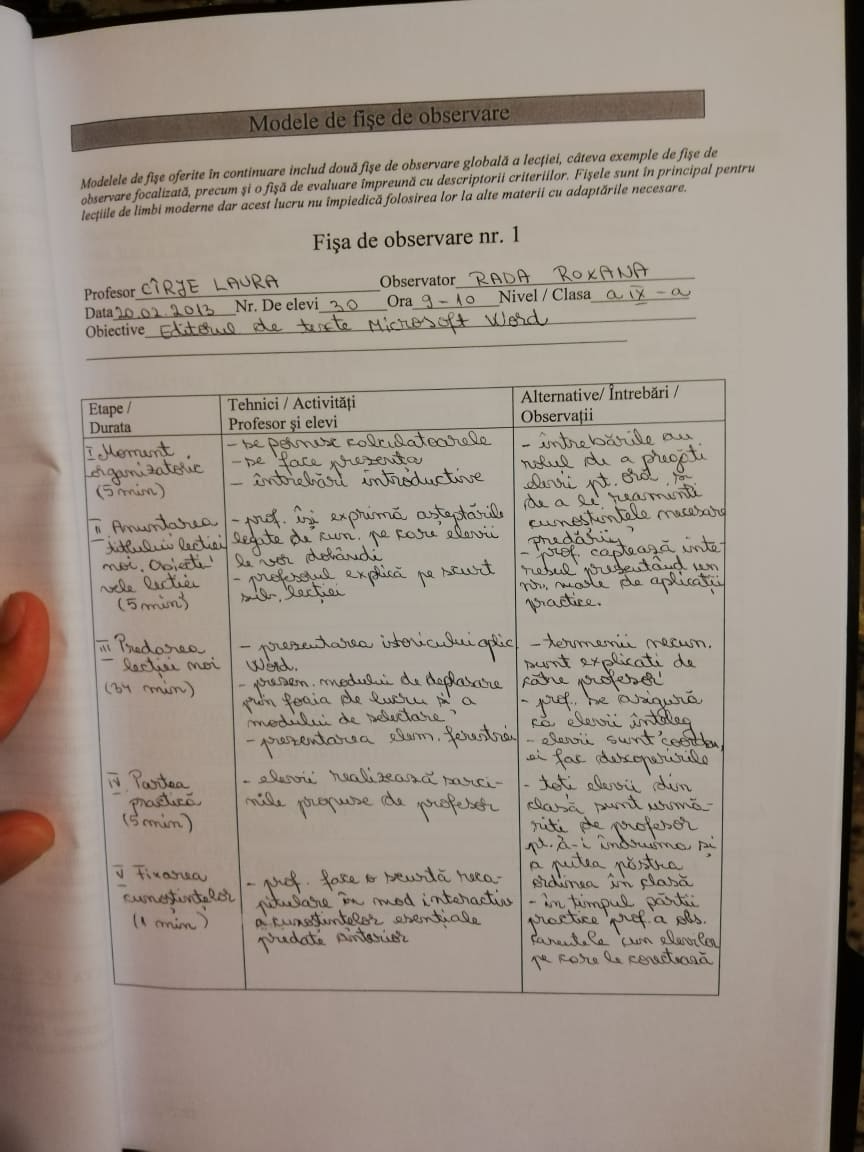 Modele de fişe de observare
Modelele de fişe oferite în continuare includ două fişe de observare globală a lecţiei, câteva exemple de fişe de
observare focalizată, precum şi o fişă de evaluare împreună cu descriptorii criteriilor. Fişele sunt în principal pentru
lecţiile de limbi moderne dar acest lucru nu împiedică folosirea lor la alte materii cu adaptările necesare.
Fişa de observare nr. 1
Profesor CÎRJE LAURA Observator RADA ROXANA
Data 20.02.2013 Nr. De elevi 30 Ora 9-10 Nivel / Clasa a IX-a
Obiective Editorul de texte Microsoft Word
Etape /
Durata
Tehnici / Activităţi
Profesor şi elevi
Alternative/ Întrebări /
Observaţii
I Moment
organizatoric
(5 min)
- se pornesc calculatoarele
- se face prezenţa
- întrebări introductive
- întrebările au
rolul de a pregăti
elevii pt. oră şi
de a le reaminti
cunoştinţele necesare
predării
II Anunţarea
titlului lecţiei
noi. Obiecti-
vele lecţiei
(5 min)
- prof. îşi exprimă aşteptările
legate de cun. pe care elevii
le vor dobândi
- profesorul explică pe scurt
lecţiei
- prof. captează inte-
resul prezentând un
nr. mare de aplicaţii
practice.
III Predarea
lecţiei noi
(34 min)
- prezentarea istoricului aplic.
Word.
- prezen. modului de deplasare
prin foaia de lucru şi a
modului de selectare
- prezentarea elem. ferestrei
- termenii necun.
sunt explicati de
către profesor
- prof. se asigură
că elevii înţeleg
- elevii sunt coordon,
ei fac descoperirile
IV Partea
practică
(5 min)
- elevii realizează sarci-
nile propuse de profesor
- toti elevii din
clasă sunt urmă-
riti de profesor
pt. a-i îndruma şi
a putea păstra
ordinea în clasă
V Fixarea
cunoştinţelor
(1 min)
- prof. face o scurtă reca-
pitulare în mod interactiv
a cunoştinţelor esenţiale
predate anterior
- în timpul părţii
practice prof. a obs.
carentele cun elevilor
pe care le corectează